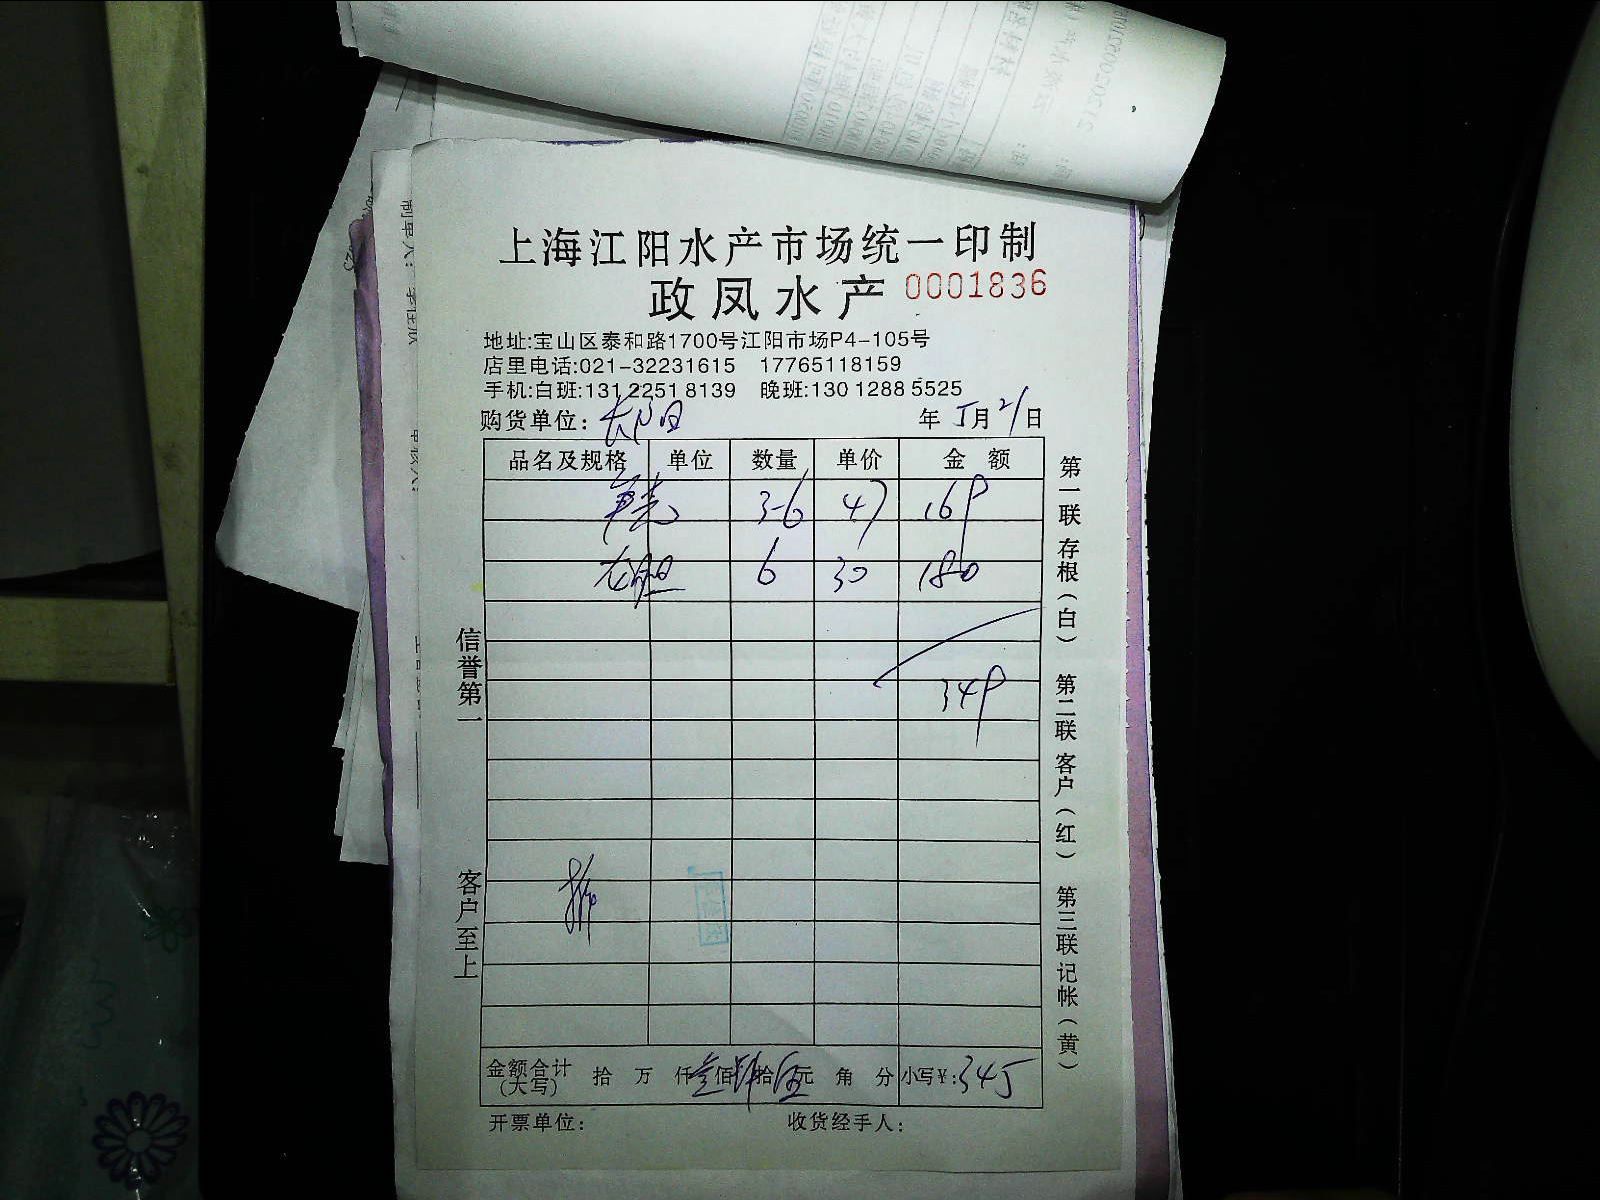 上海江阳水产市场统一印制
政凤水产 0001836
地址:宝山区泰和路1700号江阳市场P4-105号
店里电话:021-32231615 17765118159
手机:白班:131 2251 8139 晚班:130 1288 5525
购货单位: 年5月21日
品名及规格 单位 数量 单价 金额
3-6 47 169
龙胆 6 30 180
349
金额合计(大写) 拾 万 仟 佰 拾 伍元 角 分 小写¥:345
开票单位: 收货经手人:
信誉第一
客户至上
第一联 存根(白) 第二联 客户(红) 第三联 记帐(黄)